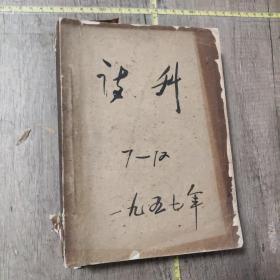 诗刊
7—12
一九五七年